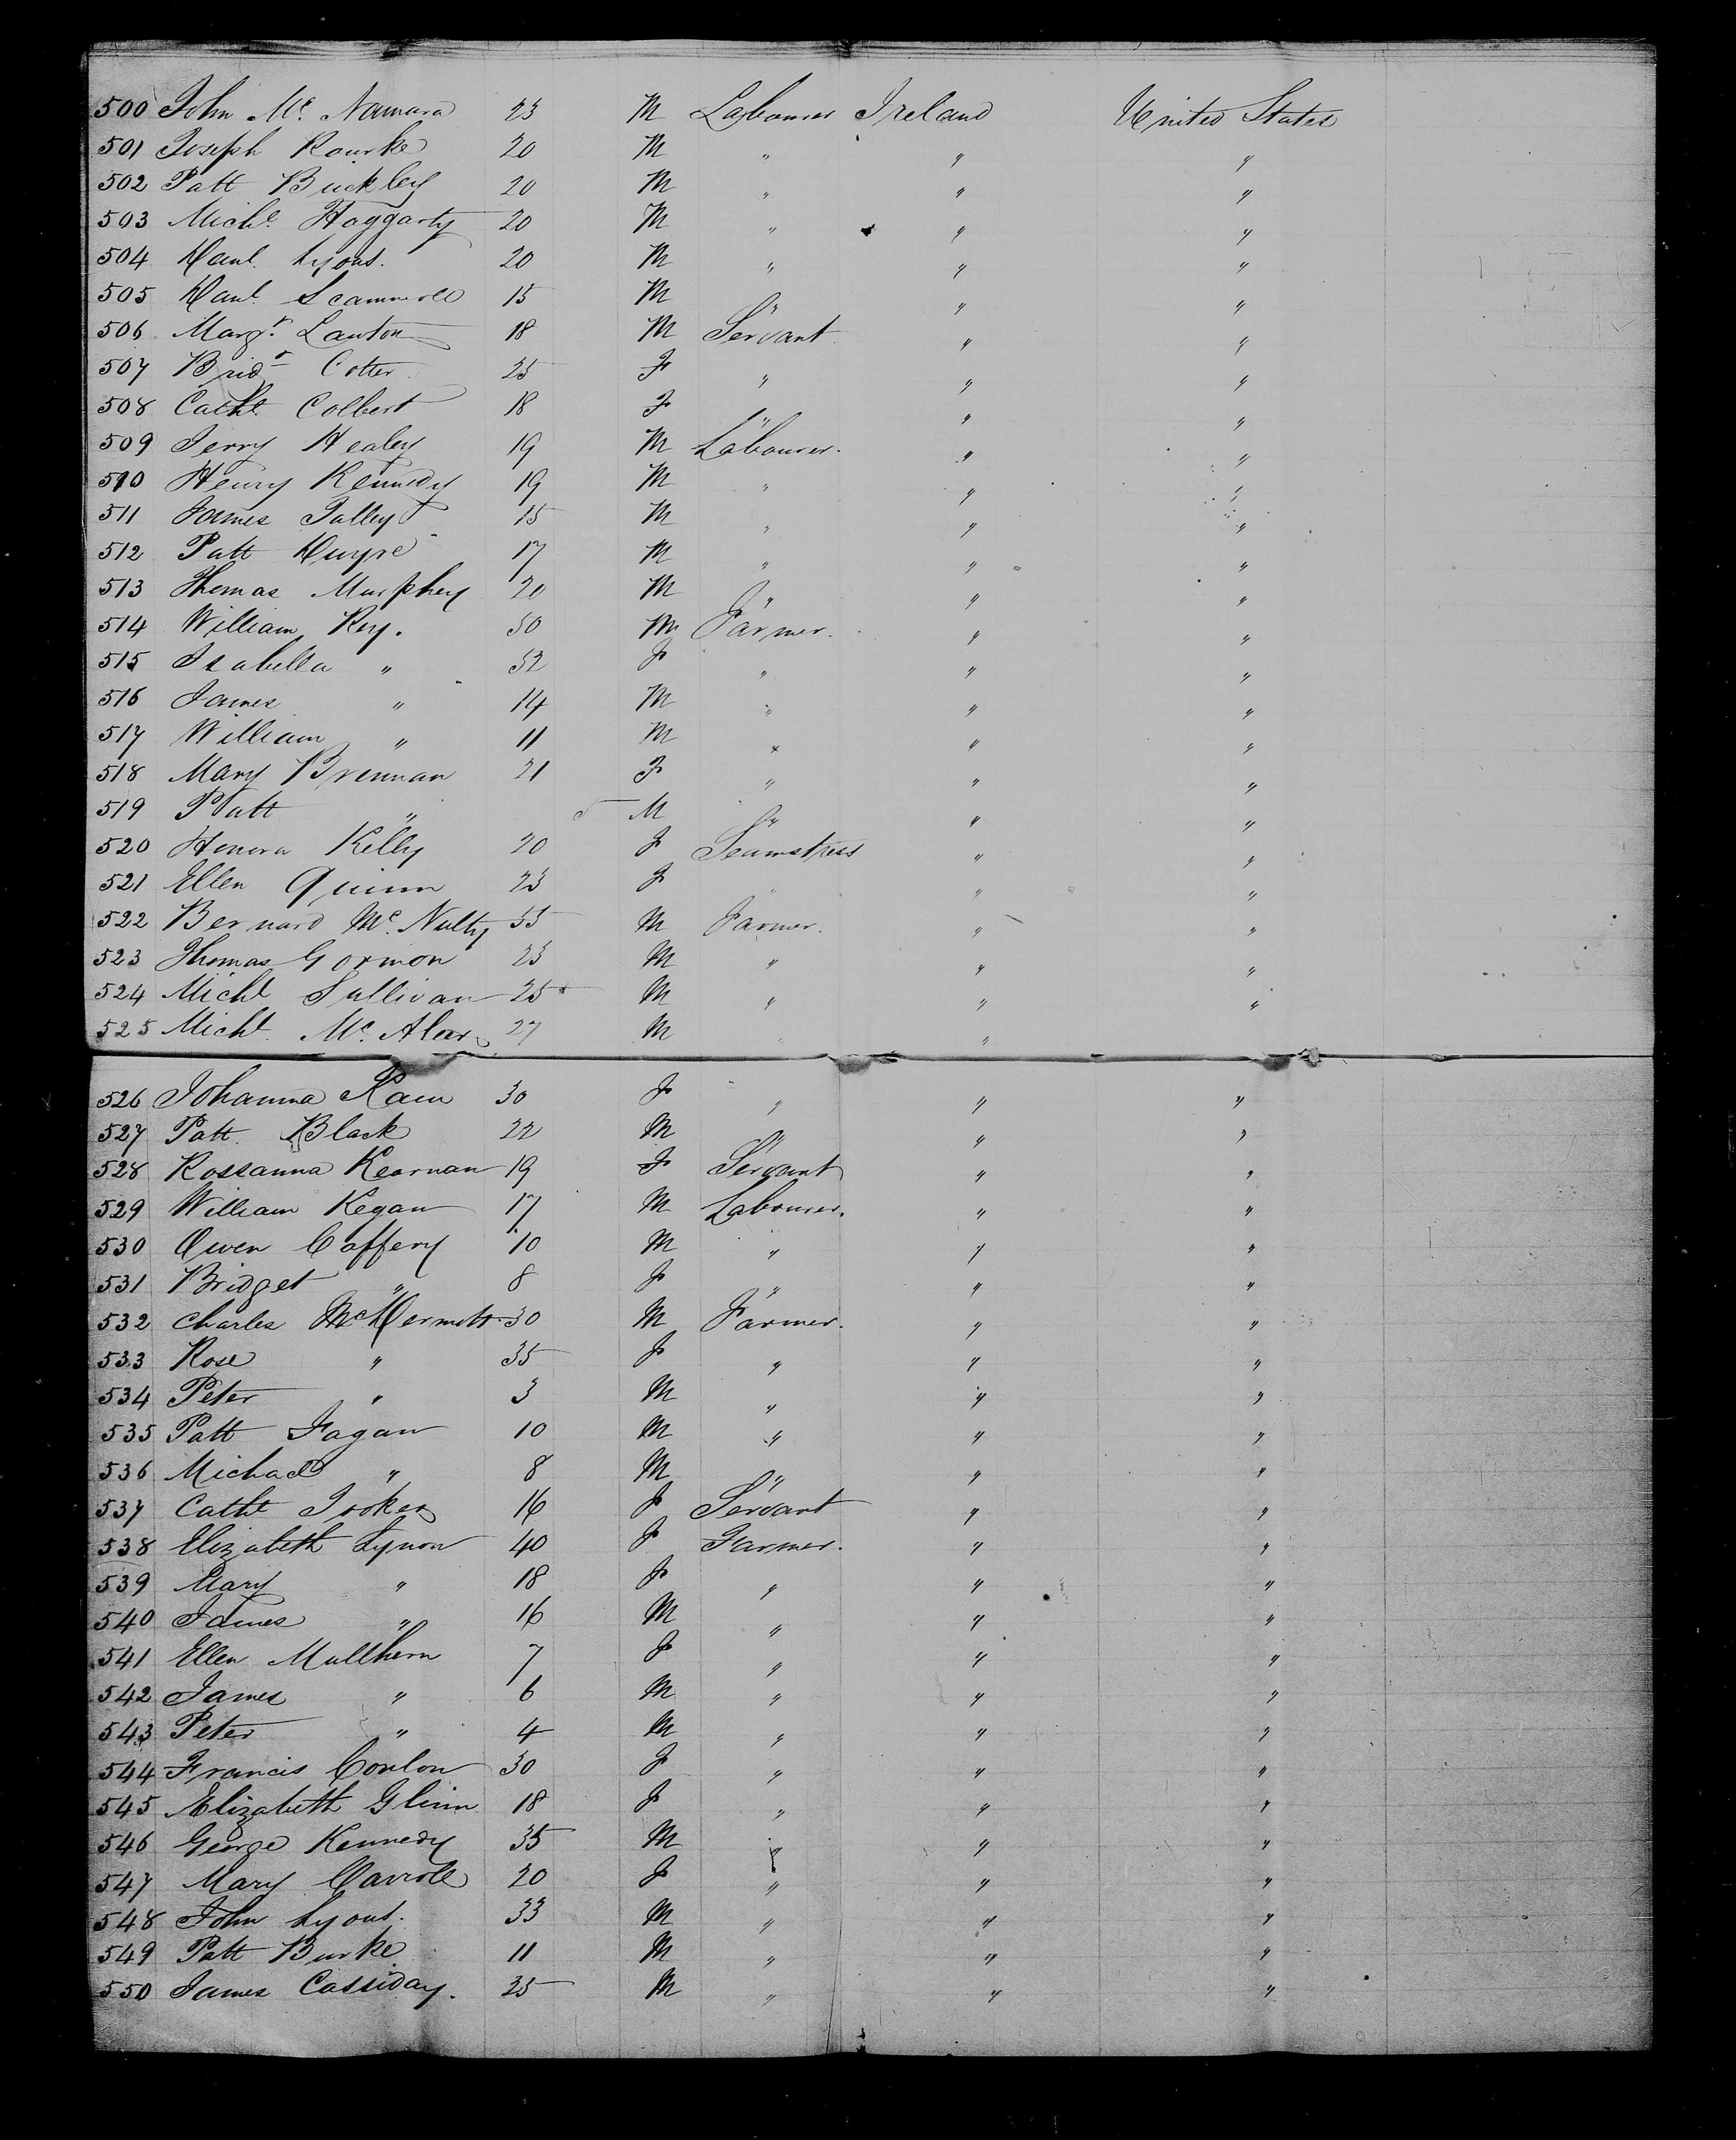 500 John Mc. Namara 23 M Labourer Ireland United States
501 Joseph Rourke 20 M " " "
502 Patt Buckley 20 M " " "
503 Michl. Haggarty 20 M " " "
504 Danl. Lyons. 20 M " " "
505 Danl. Scammell 15 M " " "
506 Margt. Lawton 18 M Servant " "
507 Bridt. Cotter 25 F " " "
508 Cathe Colbert 18 F " " "
509 Jerry Healey 19 M Labourer. " "
510 Henry Kennedy 19 M " " "
511 James Talley 15 M " " "
512 Patt Dwyre 17 M " " "
513 Thomas Murphey 20 M " " "
514 William Key. 50 M Farmer. " "
515 Isabella " 52 F " " "
516 James " 14 M " " "
517 William " 11 M " " "
518 Mary Brennan 21 F " " "
519 Patt " 5 M " " "
520 Honora Kelly 20 F Seamstress " "
521 Ellen Quinn 23 F " " "
522 Bernard Mc. Nulty 55 M Farmer. " "
523 Thomas Gormon 23 M " " "
524 Michl Sullivan 25 M " " "
525 Michl. Mc. 27 M " "
526 Johanna 30 F " " "
527 Patt. Black 22 M " " "
528 Rossanna Kearnan 19 F Servant " "
529 William Kegan 17 M Labourer. " "
530 Owen Caffery 10 M " " "
531 Bridget " 8 F " " "
532 Charles McDermott 30 M Farmer. " "
533 Rose " 35 F " " "
534 Peter " 3 M " " "
535 Patt Fagan 10 M " " "
536 Michael " 8 M " " "
537 Cathe 16 F Servant " "
538 Elizabeth Lynon 40 F Farmer. " "
539 Mary " 18 F " " "
540 James " 16 M " " "
541 Ellen Mullhern 7 F " " "
542 James " 6 M " " "
543 Peter " 4 M " " "
544 Francis Conlon 30 F " " "
545 Elizabeth Glinn 18 F " " "
546 George Kennedy 35 M " " "
547 Mary Carroll 20 F " " "
548 John Lyons. 33 M " " "
549 Patt Burke 11 M " " "
550 James Cassiday. 25 M " " "